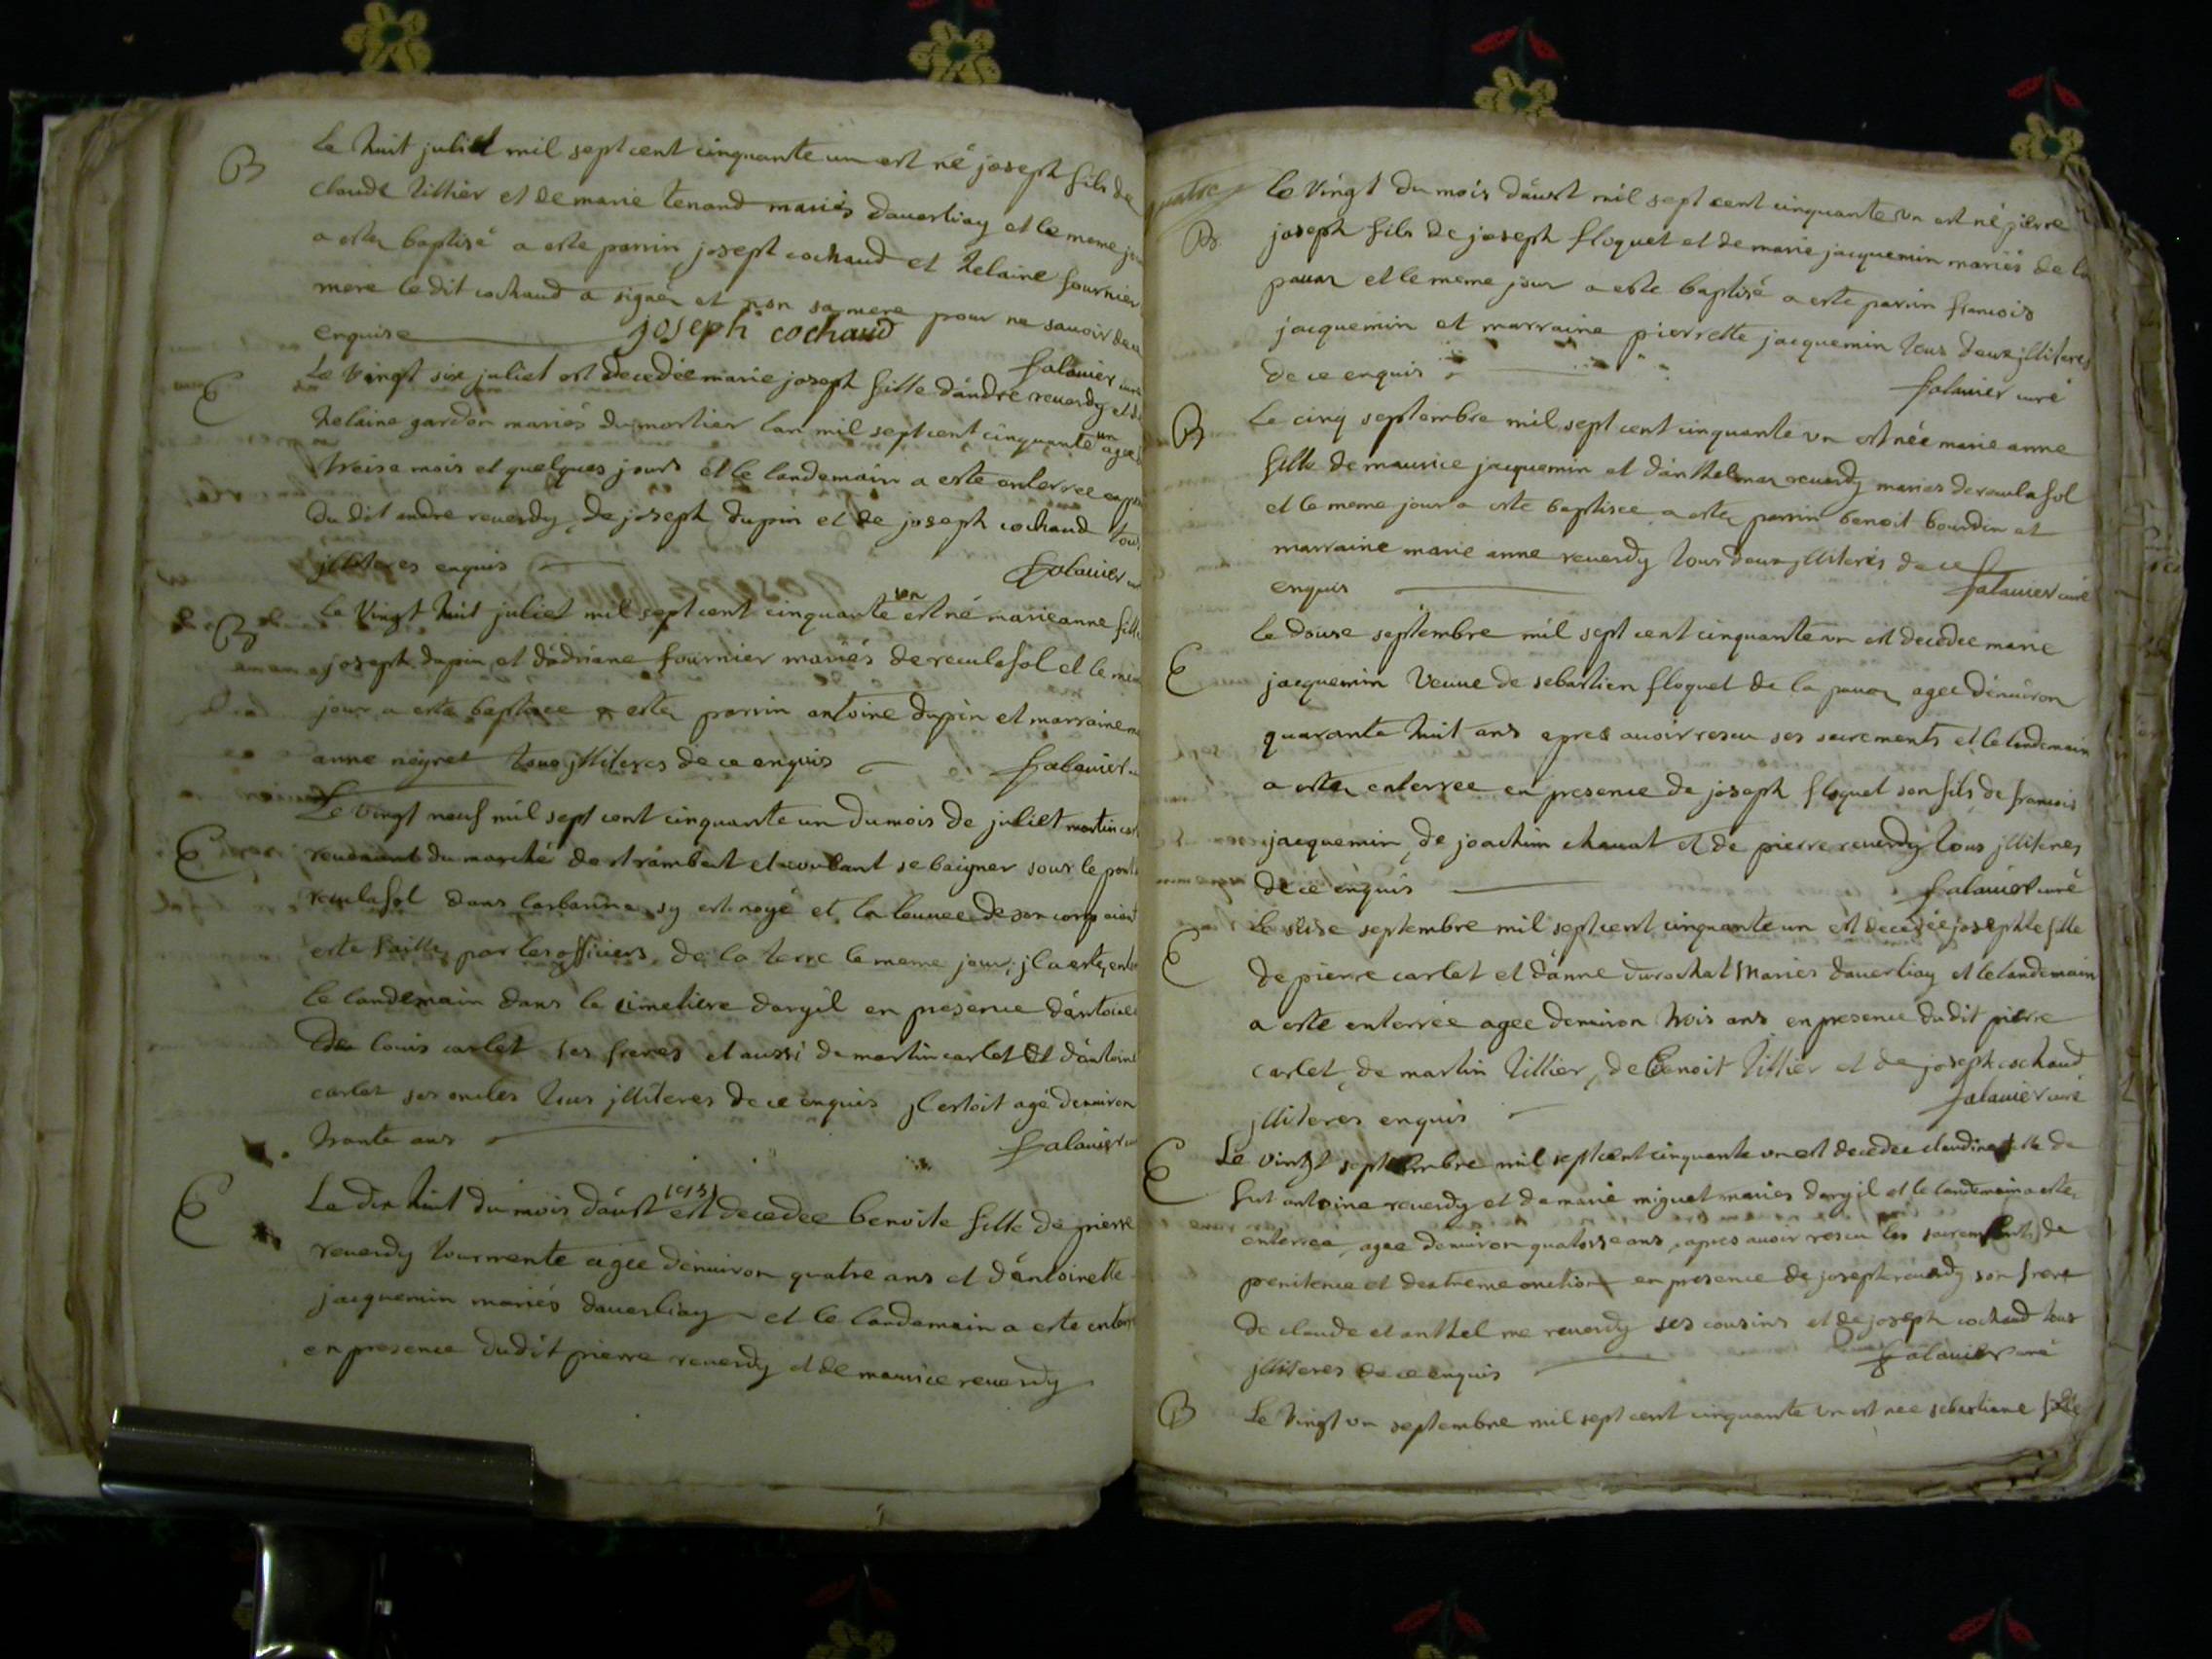 B
Le huit juliet mil sept cent cinquante un est né joseph fils de
claude tillier et de marie tenand mariés dauerliay et le meme jou
a estez baptisé a este parrin joseph cochaud et helaine fournier
mere le dit cochaud a signez et non sa mere pour ne sauoir de ce
enquise joseph cochaud
falauier curé
E
Le Vingt six juliet est decedée marie joseph fille d'andre reuerdy et de
helaine gardon mariés du mortier lan mil sept cent cinquante un agee
treise mois et quelques jours et le landemain a este enterree en pre
du dit andre reuerdy, de joseph dupin et de joseph cochaud tous
jlliteres enquis
falauier
B
Le Vingt huit juliet mil sept cent cinquante un est né marieanne fille
joseph dupin et d'adriane fournier mariés de reculafol et le mem
jour a este baptisee a estez parrin antoine dupin et marraine
anne neyret tous jlliteres de ce enquis
falauier
Le vingt neuf mil sept cent cinquante un du mois de juliet martin car
E
reuenant du marché de st rambert et voulant se baigner sous le pont
reculafol dans larbarine sy est noyé et la leuuee de son corp aiant
este faitte par les officiers de la terre le meme jour, jl a estez enter
le landemain dans le cimetiere dargil en presence d'antoine
de louis carlet ses freres et aussi de martin carlet et d'antoine
carlet ses oncles tous jlliteres de ce enquis jl estoit agé denuiron
trante ans
falauier
E
Le dix huit du mois d'aust 1751 est decedee benoite fille de pierre
reuerdy tourmente agee d'enuiron quatre ans et d'antoinette
jacquemin mariés dauerliay et le landemain a este enterr
en presence dudit pierre reuerdy et de maurice reuerdy
quatre
B
Le Vingt du mois d'aust mil sept cent cinquante un est né pierre
joseph fils de joseph floquet et de marie jacquemin mariés de la
pauaz et le meme jour a este baptisé a este parrin francois
jacquemin et marraine pierrette jacquemin tous deux jlliteres
de ce enquis
falauier curé
B
Le cinq septembre mil sept cent cinquante un est née marie anne
fille de maurice jacquemin et d'anthelmaz reuerdy mariés de reculafol
et le meme jour a este baptisee a estez parrin benoit bourdin et
marraine marie anne reuerdy tous deux jlliterés de ce
enquis
falauier curé
E
Le douse septembre mil sept cent cinquante un est decedee marie
jacquemin Veuue de sebastien floquet de la pauaz agee d'enuiron
quarante huit ans apres auoir reseu ses sacrements et le landemain
a estez enterree en presence de joseph floquet son fils de francois
jacquemin, de joachim chauat et de pierre reuerdy tous jlliteres
de ce enquis
falauier curé
E
Le seise septembre mil sept cent cinquante un est decedée josephte fille
de pierre carlet et d'anne durochat mariés dauerliay et le landemain
a este enterrée agee denuiron trois ans en presence du dit pierre
carlet, de martin tillier, de benoit tillier et de joseph cochaud
jlliteres enquis
falauier curé
E
Le vintgt septembre mil sept cent cinquante un est decedee claudine fille de
fut antoine reuerdy et de marie miguet mariés dargil et le landemain a estez
enterree, agee denuiron quatorse ans, apres auoir reseu les sacrements de
penitence et dextreme onction en presence de joseph reuerdy son frere
de claude et anthelme reuerdy ses cousins et de joseph cochaud tous
jlliteres de ce enquis
falauier curé
B
Le Vingt un septembre mil sept cent cinquante un est nee sebastiane fille